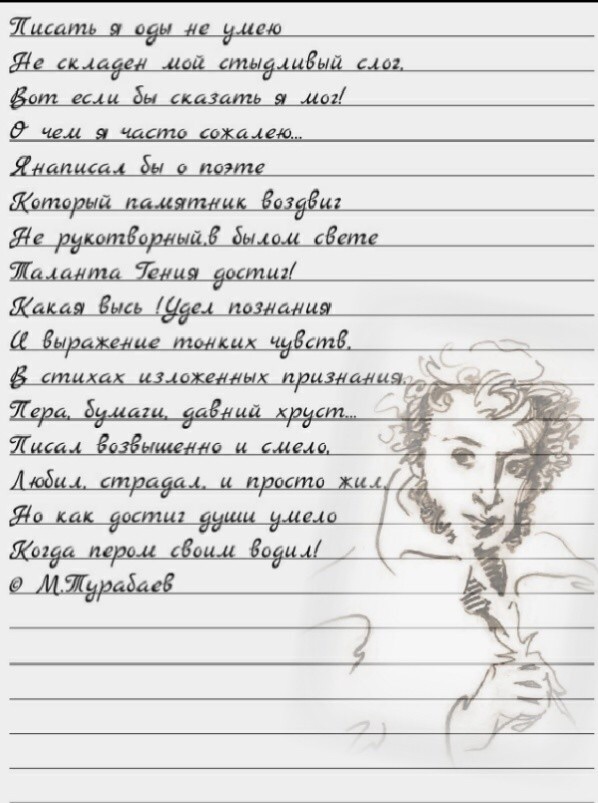 Писать я оды не умею
Не складен мой стыдливый слог.
Вот если бы сказать я мог!
О чем я часто сожалею...
Янаписал бы о поэте
Который памятник воздвиг
Не рукотворный,в былом свете
Таланта Гения достиг!
Какая высь !Удел познания
И выражение тонких чувств.
В стихах изложенных признания.
Пера, бумаги, давний хруст...
Писал возвышенно и смело,
Любил, страдал, и просто жил,
Но как достиг души умело
Когда пером своим водил!
© М.Турабаев